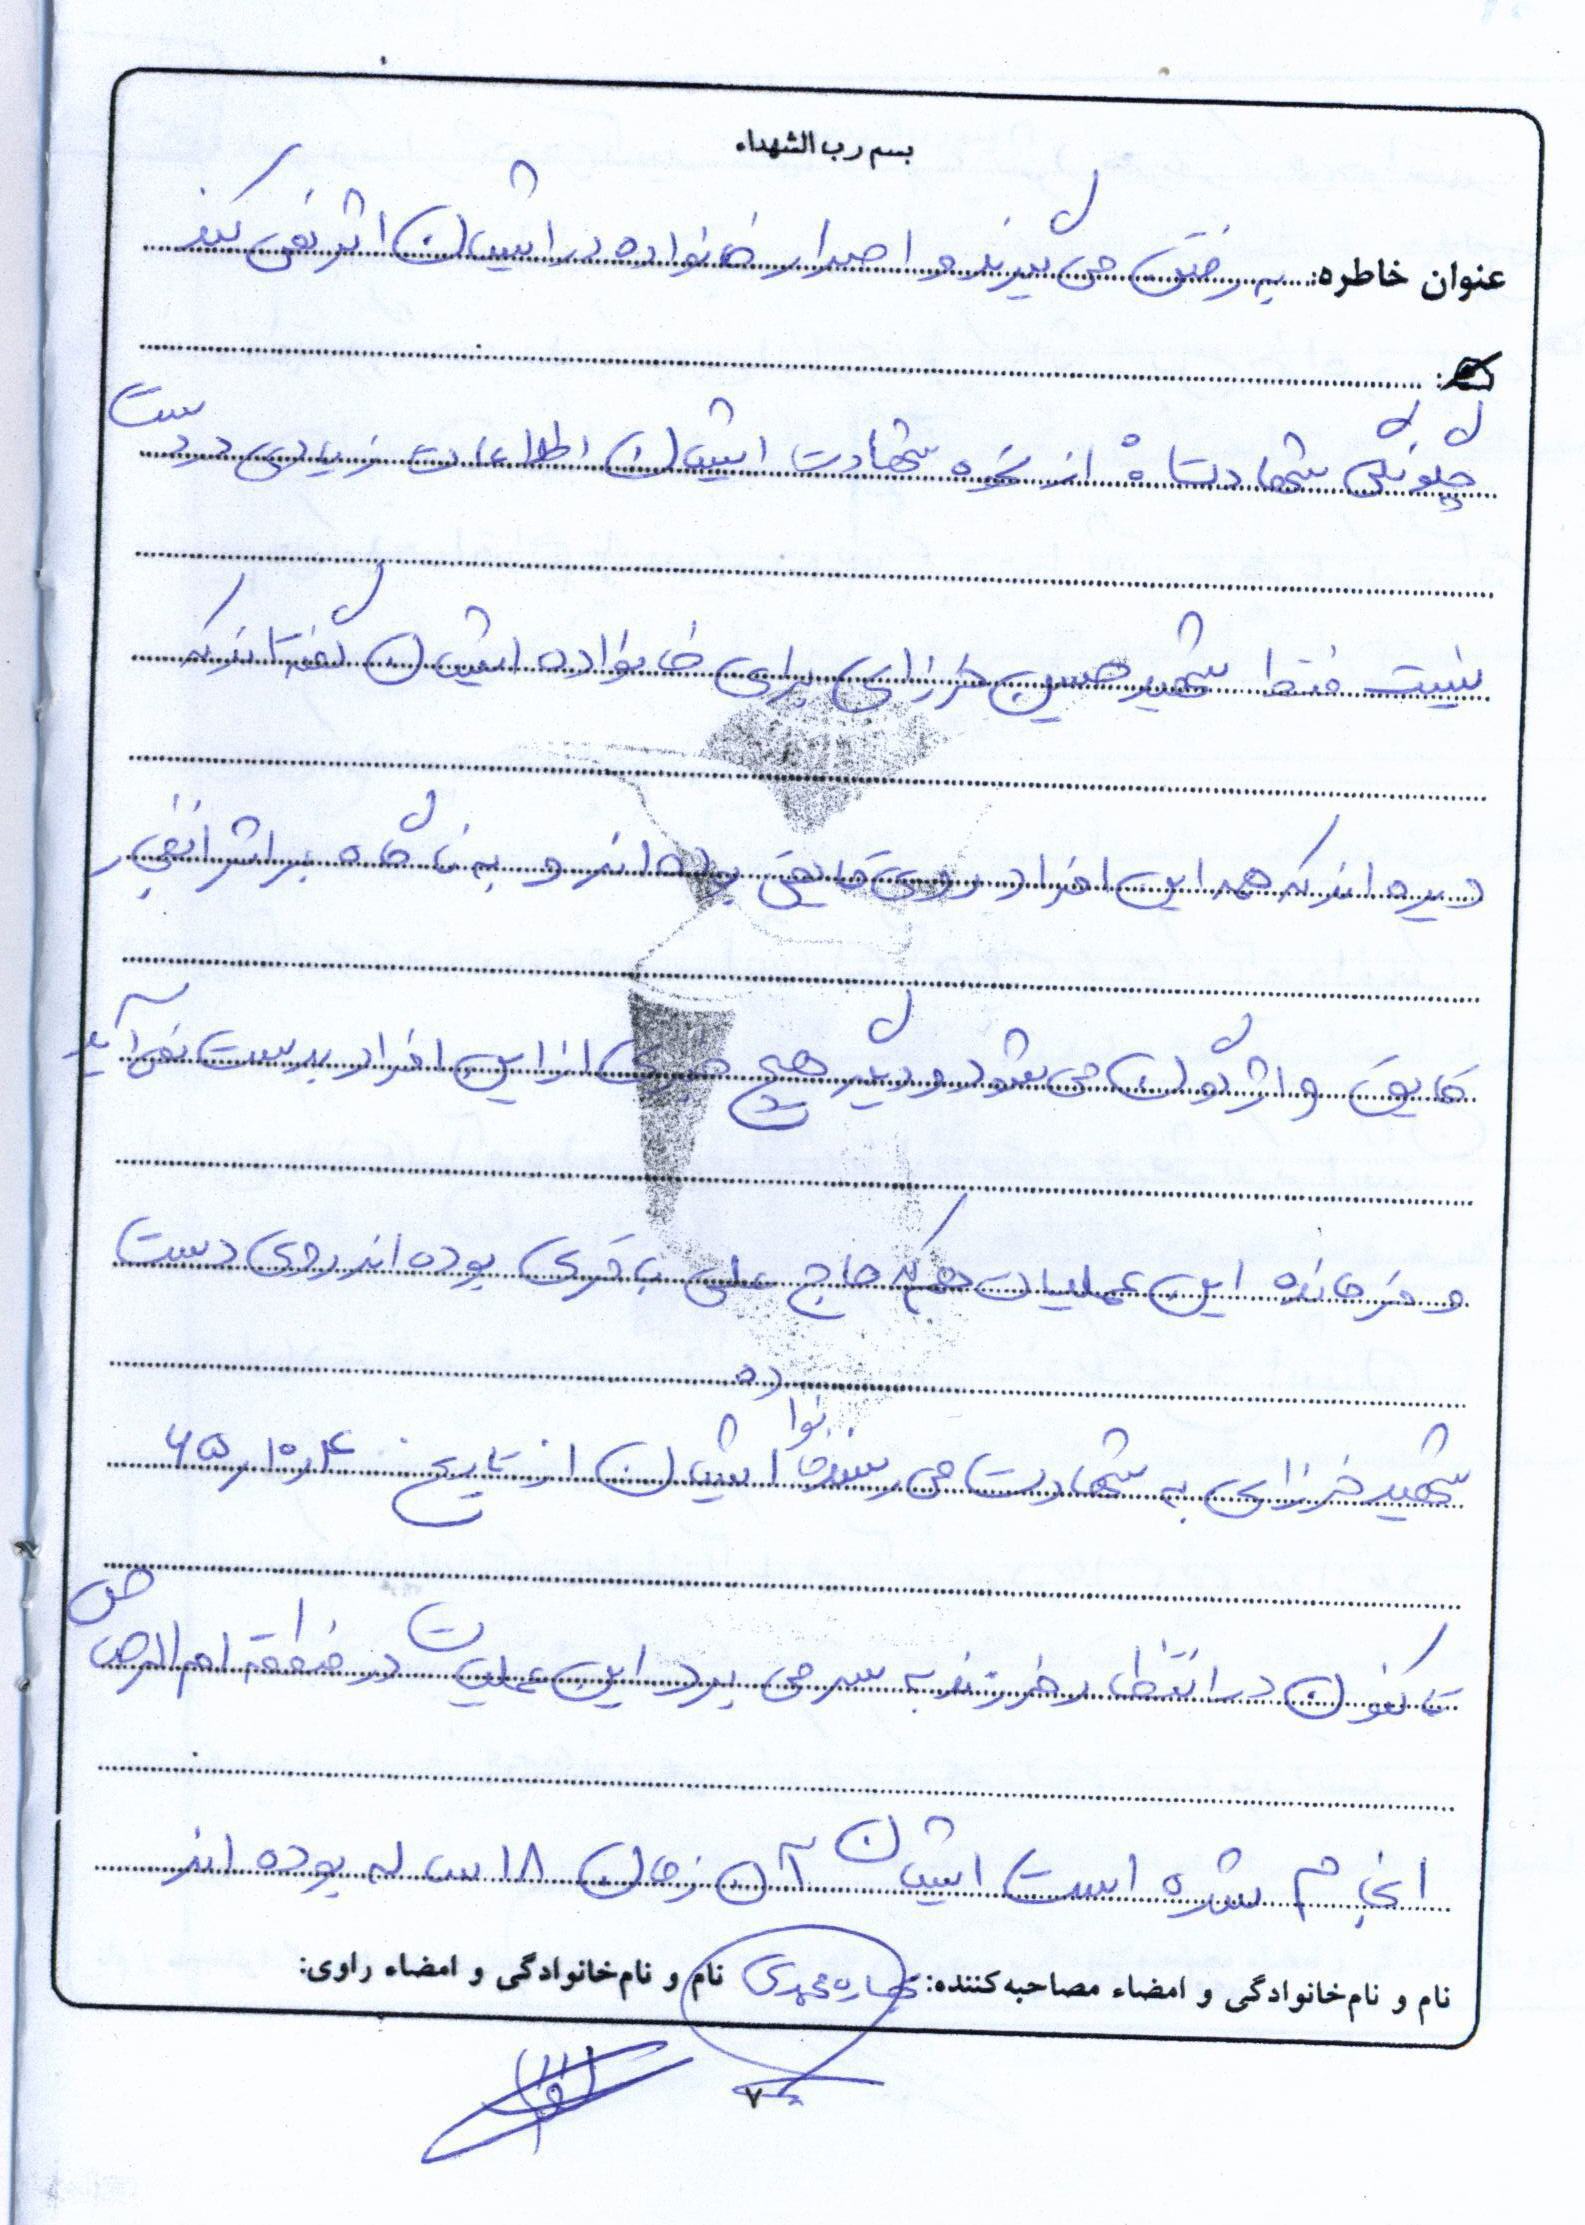 بسم رب الشهداء
عنوان خاطره: به رفتن می گیرند و اصرار خانواده در ایشان اثر نمی کند
چگونگی شهادت: از نحوه شهادت ایشان اطلاعات زیادی در دست
نیست فقط شهید حسین خرازی برای خانواده ایشان گفته اند که
دیده اند که همه این افراد روی قایق بوده اند و به ناگاه بر اثر انفجار
قایق واژگون می شود و دیگر هیچ چیزی از این افراد بدست نمی آید
و فرمانده این عملیات هم که حاج علی باقری بوده اند روی دست
شهید خرازی به شهادت می رسند خانواده ایشان از تاریخ ۶۵/۱۰/۴
تاکنون در انتظار فرزند به سر می برد این عملیات در منطقه ام الرصاص
انجام شده است ایشان آن زمان ۱۸ ساله بوده اند
نام و نام‌خانوادگی و امضاء مصاحبه‌کننده: محمدی نام و نام‌خانوادگی و امضاء راوی:
۷